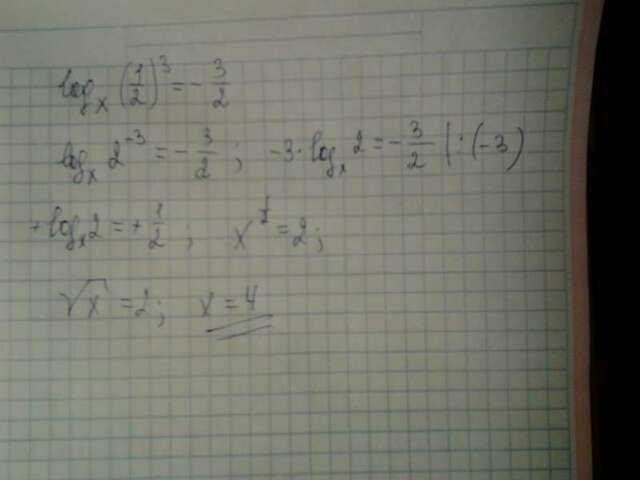 logₓ(1/2)³ = - 3/2
logₓ 2⁻³ = - 3/2 ; -3·logₓ 2 = - 3/2 | : (-3)
+logₓ2 = + 1/2 ; x^(1/2) = 2;
√x = 2; x = 4